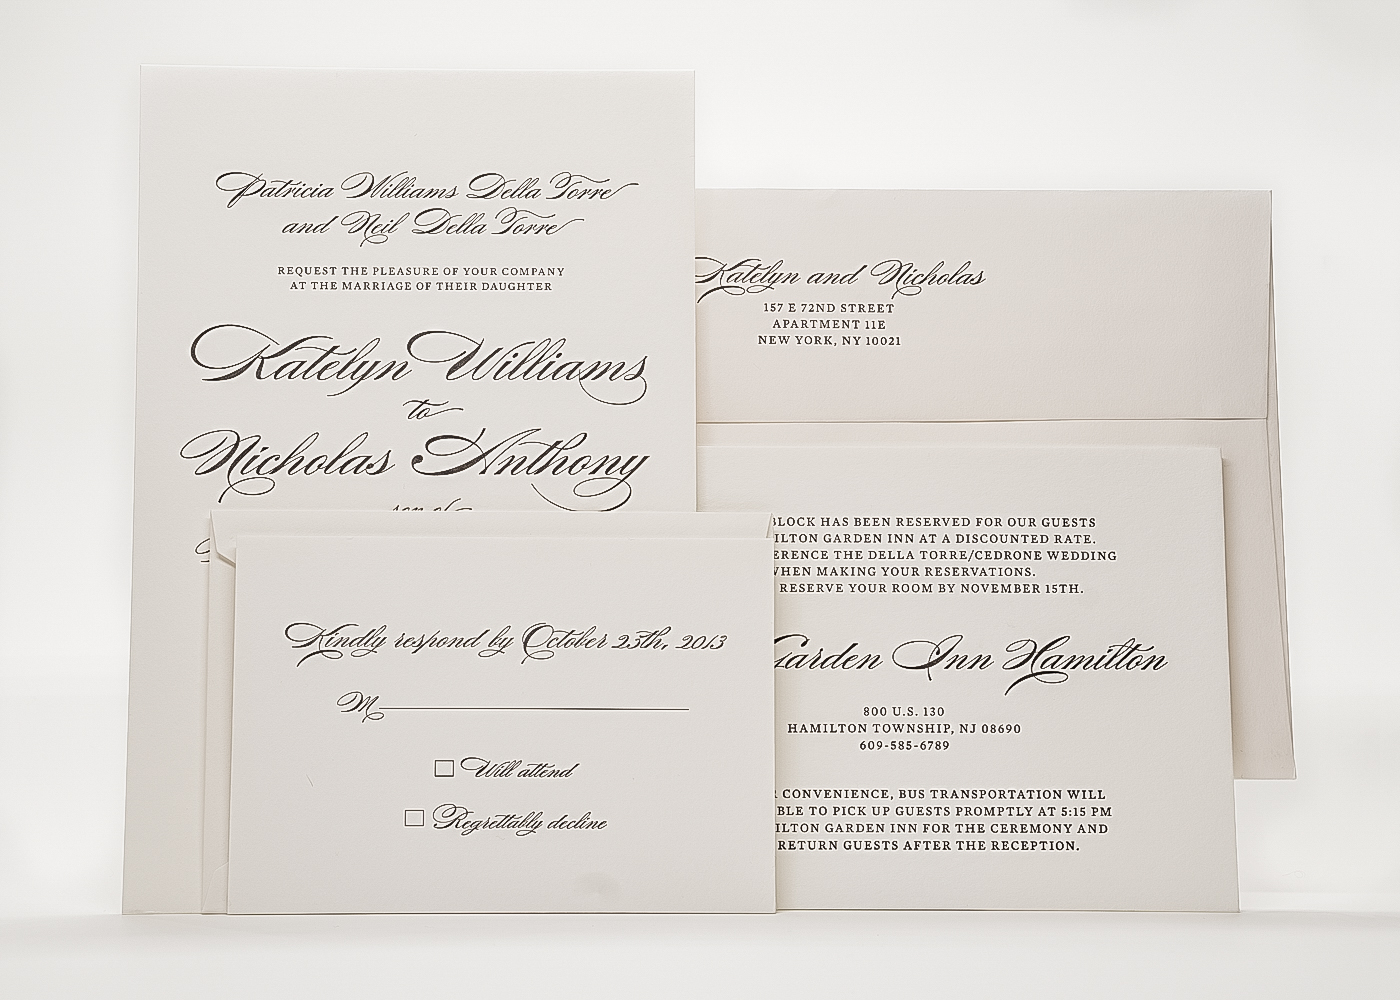 Patricia Williams Della Torre
and Neil Della Torre
REQUEST THE PLEASURE OF YOUR COMPANY
AT THE MARRIAGE OF THEIR DAUGHTER
Katelyn Williams
to
Nicholas Anthony
son of
Katelyn and Nicholas
157 E 72ND STREET
APARTMENT 11E
NEW YORK, NY 10021
Kindly respond by October 23th, 2013
M
Will attend
Regrettably decline
BLOCK HAS BEEN RESERVED FOR OUR GUESTS
ILTON GARDEN INN AT A DISCOUNTED RATE.
ERENCE THE DELLA TORRE/CEDRONE WEDDING
WHEN MAKING YOUR RESERVATIONS.
RESERVE YOUR ROOM BY NOVEMBER 15TH.
Garden Inn Hamilton
800 U.S. 130
HAMILTON TOWNSHIP, NJ 08690
609-585-6789
CONVENIENCE, BUS TRANSPORTATION WILL
BLE TO PICK UP GUESTS PROMPTLY AT 5:15 PM
ILTON GARDEN INN FOR THE CEREMONY AND
RETURN GUESTS AFTER THE RECEPTION.